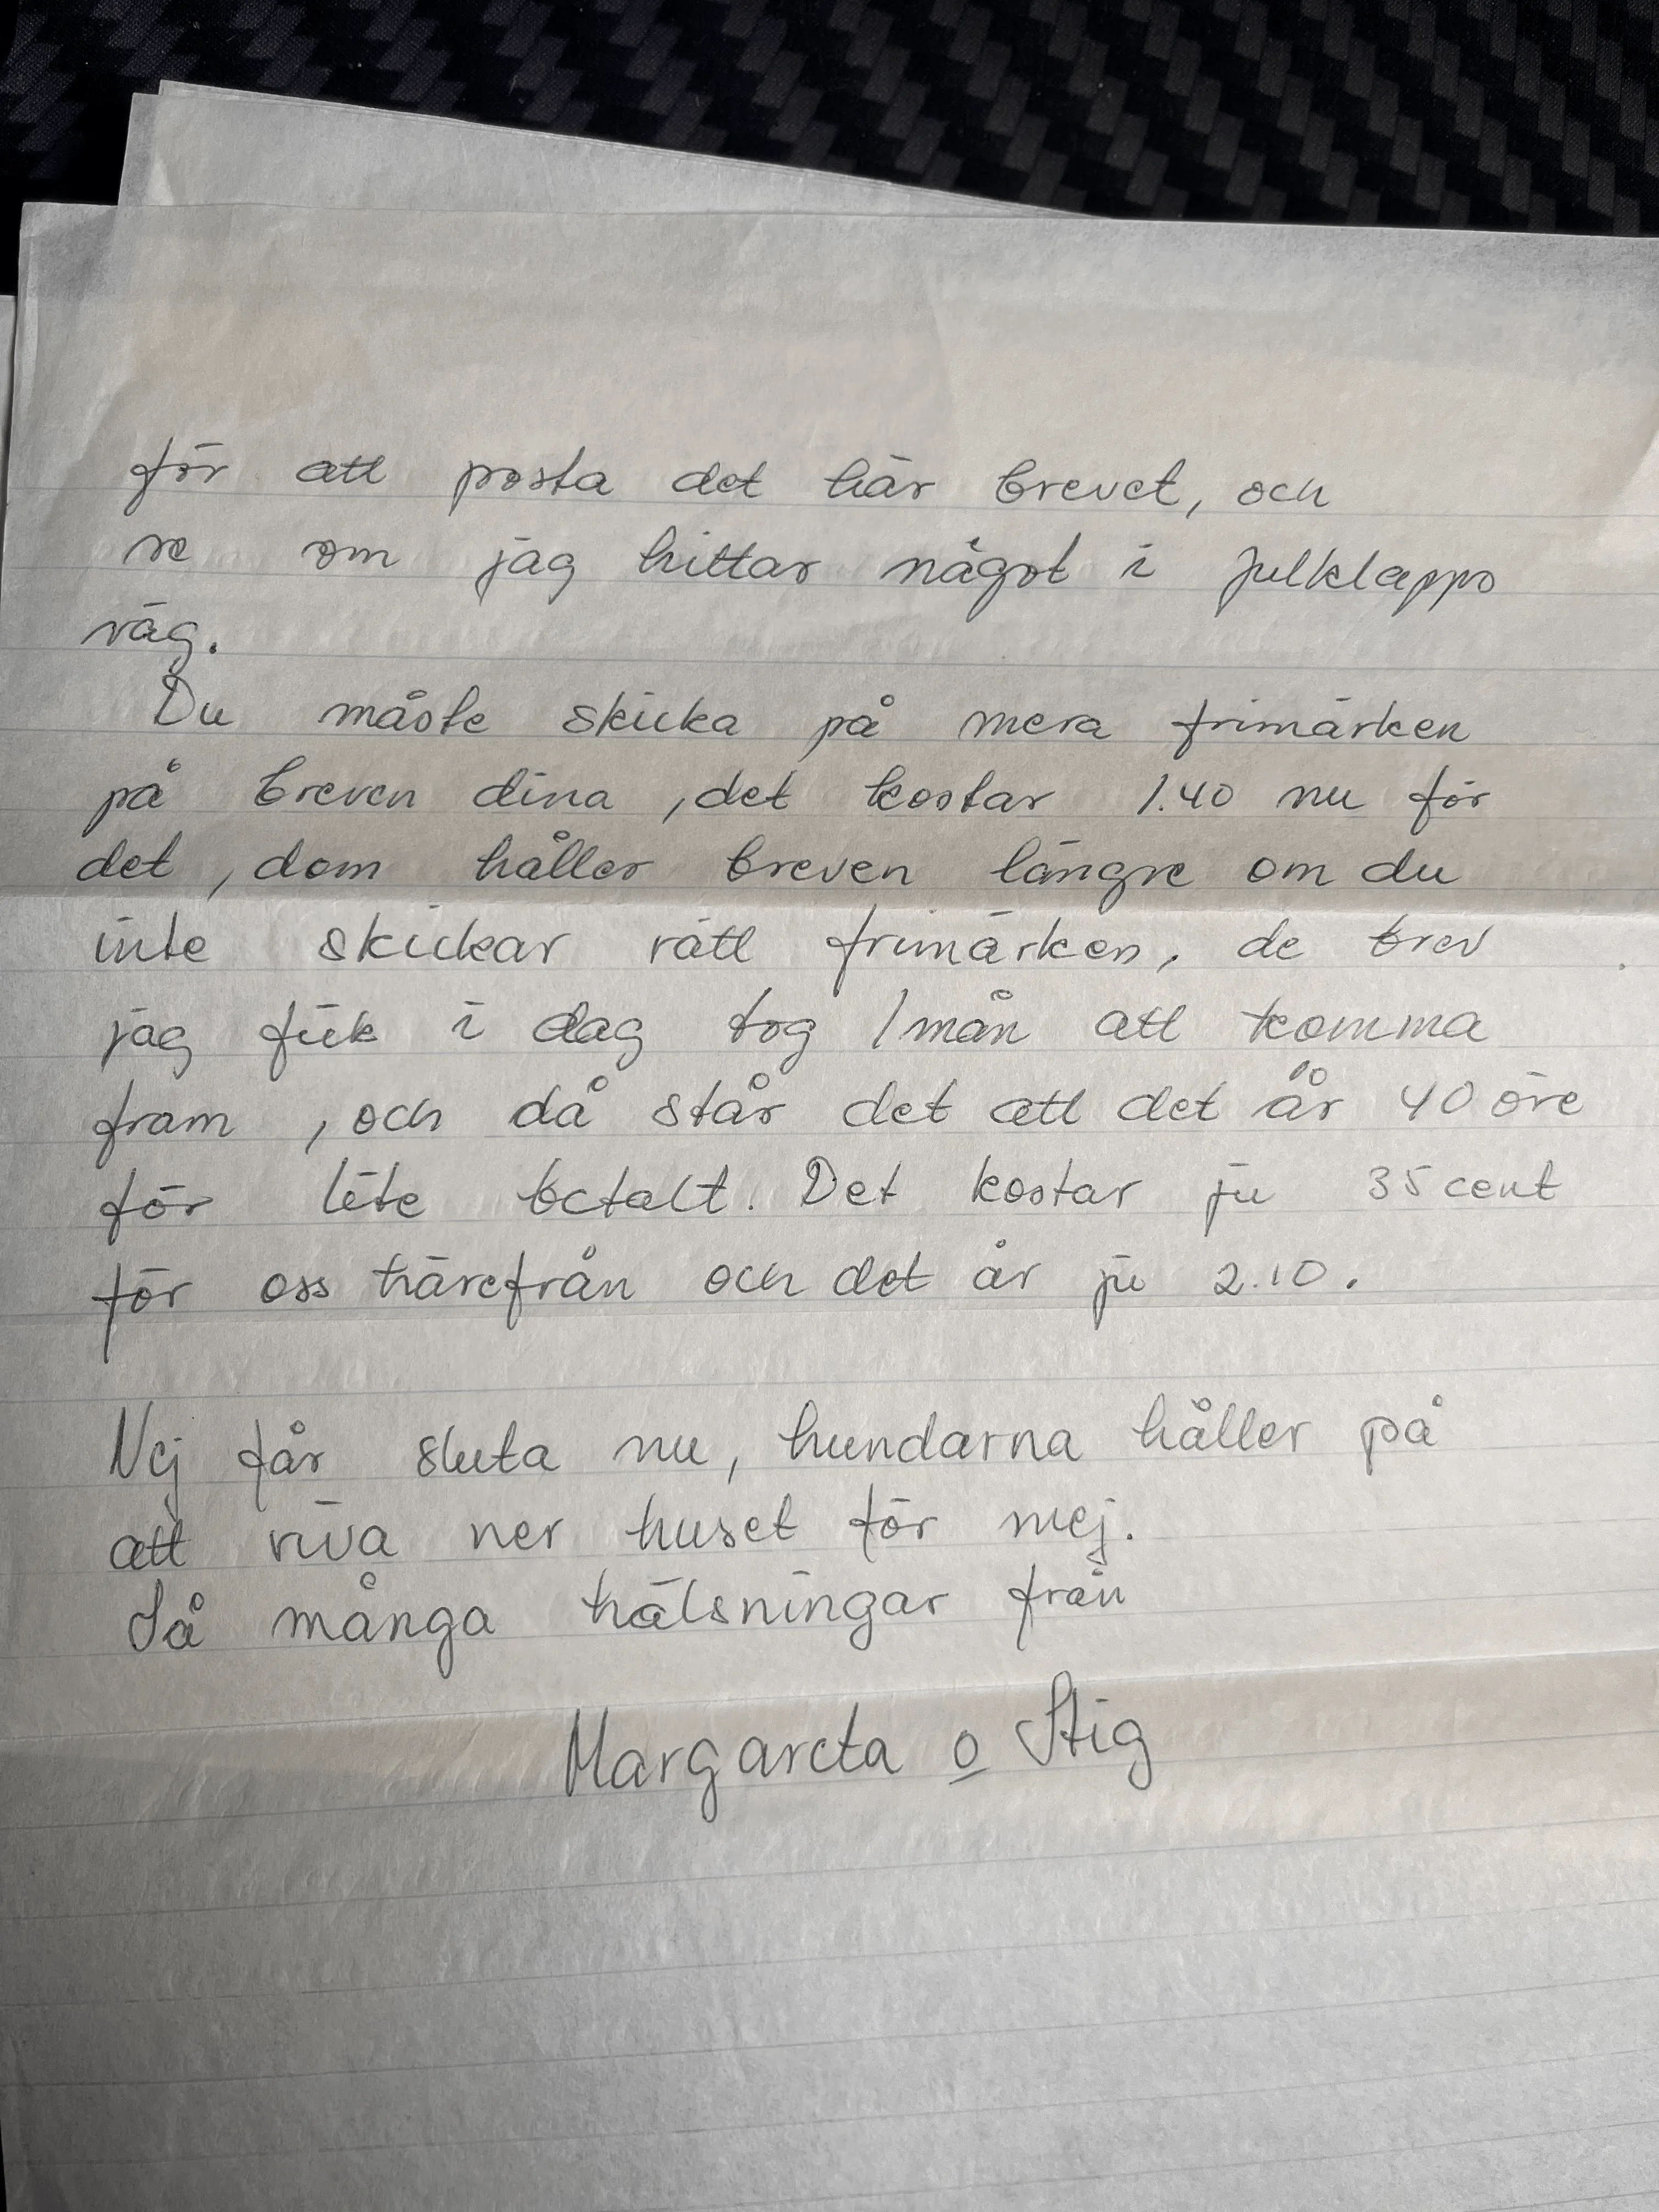 för att posta det här brevet, och
se om jag hittar något i julklapps
väg.
Du måste skicka på mera frimärken
på breven dina, det kostar 1.40 nu för
det, dom håller breven längre om du
inte skickar rätt frimärken, de brev
jag fick i dag tog 1 mån att komma
fram, och då står det att det är 40 öre
för lite betalt. Det kostar ju 35 cent
för oss härefrån och det är ju 2.10.
Nej får sluta nu, hundarna håller på
att riva ner huset för mej.
Så många hälsningar från
Margareta o Stig